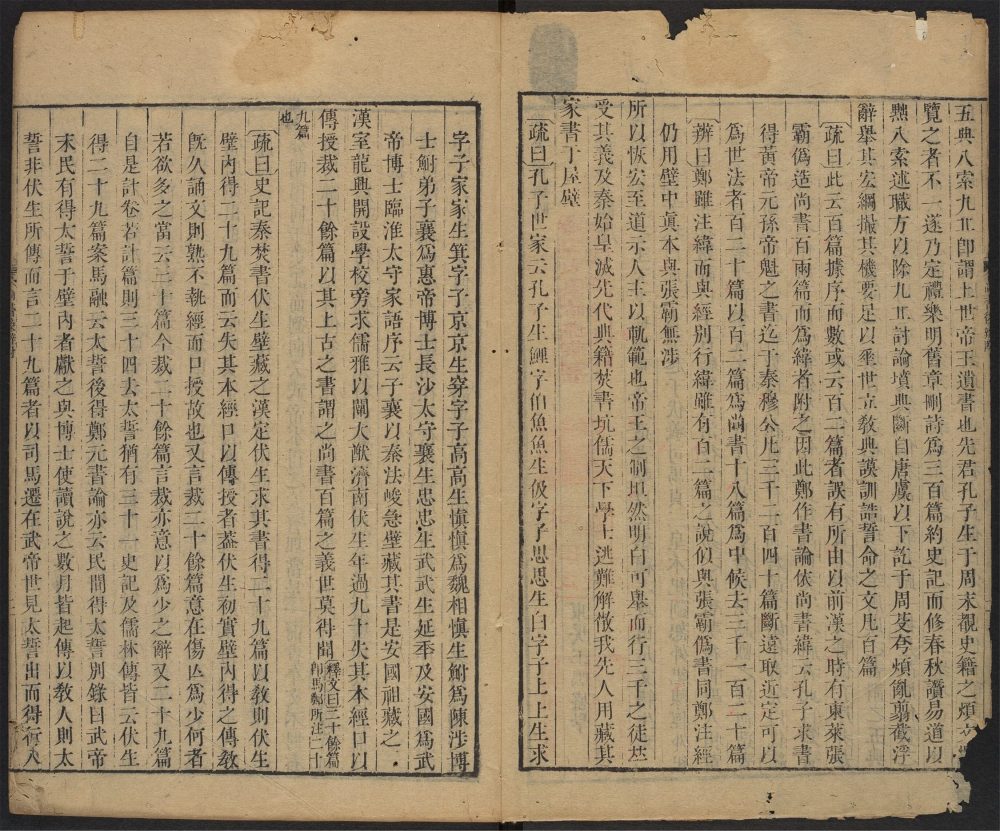 五典八索九丘卽謂上世帝王遺書也先君孔子生于周末覩史籍之煩文
覽之者不一遂乃定禮樂明舊章刪詩爲三百篇約史記而修春秋讚易道以
黜八索述職方以除九丘討論墳典斷自唐虞以下訖于周芟夸煩亂翦截浮
辭舉其宏綱撮其機要足以垂世立敎典謨訓誥誓命之文凡百篇
疏曰此云百篇據序而數或云百二篇者誤有所由以前漢之時有東萊張
霸僞造尚書百兩篇而爲緯者附之因此鄭作書論依尚書緯云孔子求書
得黃帝元孫帝魁之書迄于秦穆公凡三千二百四十篇斷遠取近定可以
爲世法者百二十篇以百二篇爲尚書十八篇爲中候去三千一百二十篇
辨曰鄭雖注緯而與經別行緯雖有百二篇之說似與張霸僞書同鄭注經
仍用壁中眞本與張霸無涉
所以恢宏至道示人主以軌範也帝王之制坦然明白可舉而行三千之徒並
受其義及秦始皇滅先代典籍焚書坑儒天下學士逃難解散我先人用藏其
家書于屋壁
疏曰孔子世家云孔子生鯉字伯魚魚生伋字子思思生白字子上上生求
字子家家生箕字子京京生穿字子高高生愼愼爲魏相愼生鮒鮒爲陳涉博
士鮒弟子襄爲惠帝博士長沙太守襄生忠忠生武武生延季及安國爲武
帝博士臨淮太守家語序云子襄以秦法峻急壁藏其書是安國祖藏之
漢室龍興開設學校旁求儒雅以闡大猷濟南伏生年過九十失其本經口以
傳授裁二十餘篇以其上古之書謂之尚書百篇之義世莫得聞釋文曰二十餘篇卽馬鄭所注二十
九篇也
疏曰史記秦焚書伏生壁藏之漢定伏生求其書得二十九篇以敎則伏生
壁內得二十九篇而云失其本經口以傳授者蓋伏生初實壁內得之傳敎
旣久誦文則熟不執經而口授故也又言裁二十餘篇意在傷亡爲少何者
若欲多之當云三十篇今裁二十餘篇言裁亦意以爲少之辭又二十九篇
自是計卷若計篇則三十四去太誓猶有三十一史記及儒林傳皆云伏生
得二十九篇案馬融云太誓後得鄭元書論亦云民間得太誓別錄曰武帝
末民有得太誓于壁內者獻之與博士使讀說之數月皆起傳以敎人則太
誓非伏生所傳而言二十九篇者以司馬遷在武帝世見太誓出而得行入